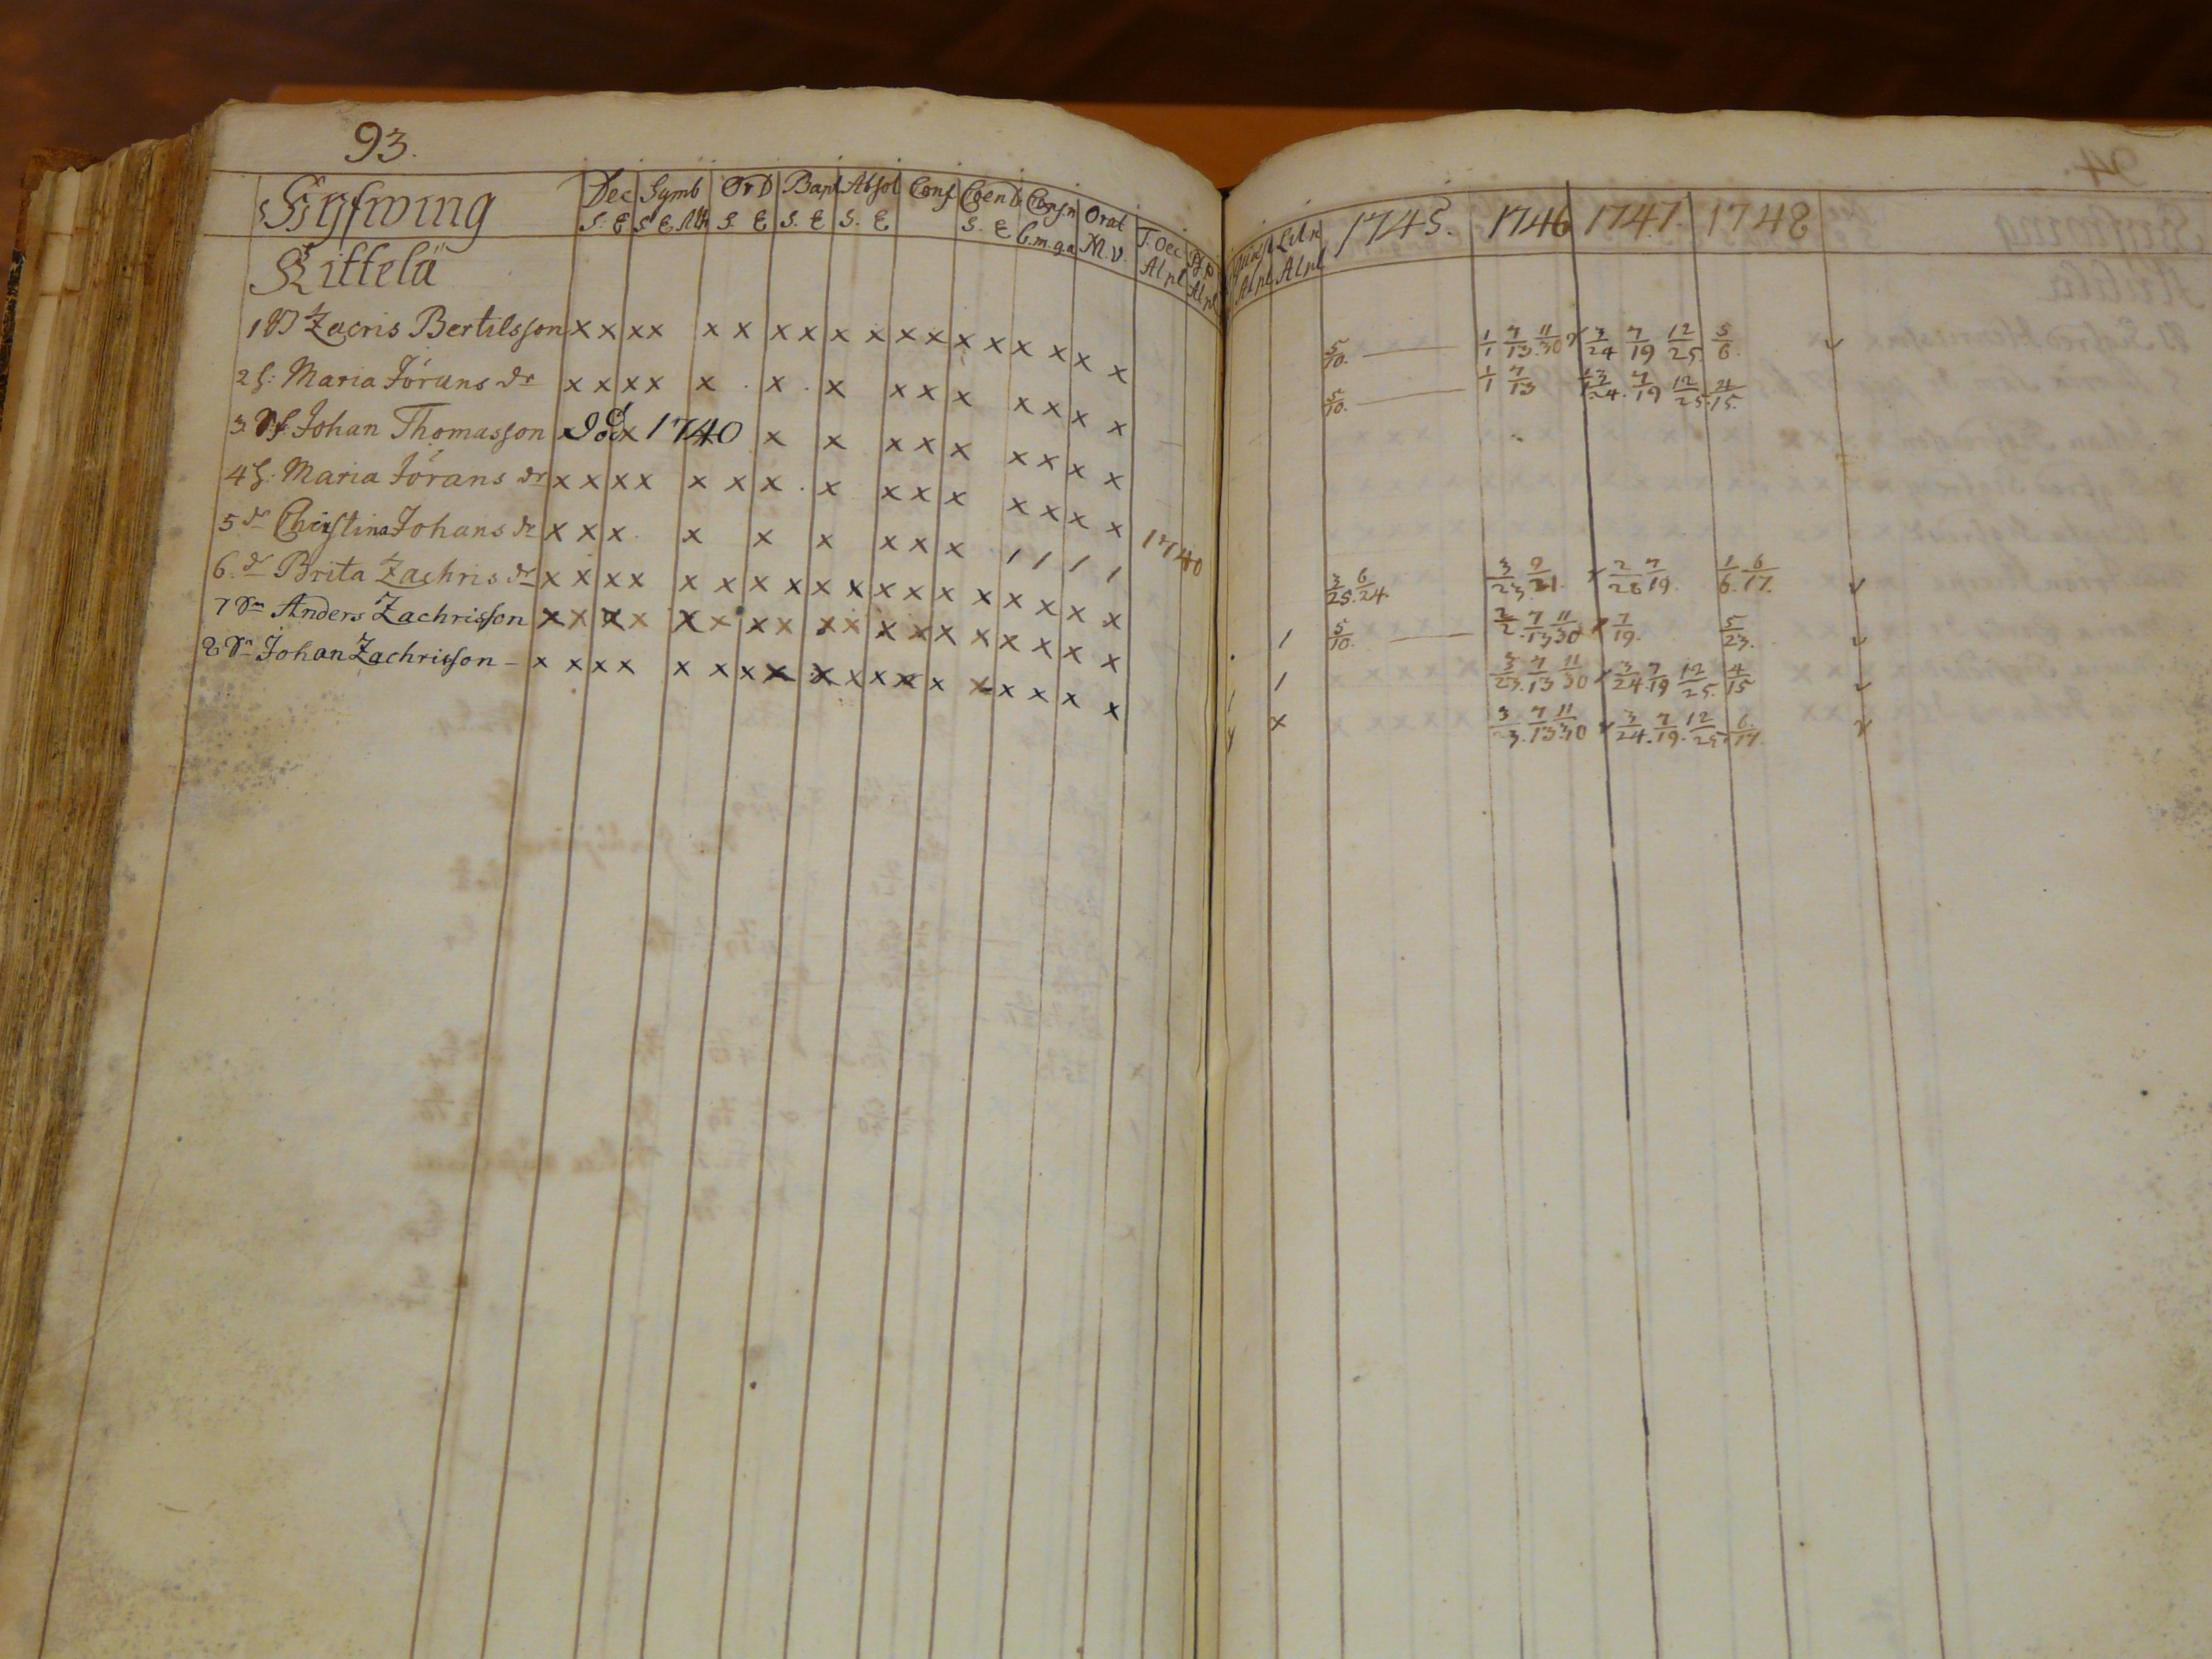 93.
Hyfwing
Kittelä
Dec Symb Or D Bapt Absol Conf Coen D Consn Orat T. Oec
S. E S E Ath S. E S. E S. E S. E C.m.g.a M.v. Al pl Al pl
1 B Zacris Bertilsson x x x x x x x x x x x x x x x x x x
2 h: Maria Jörans dr x x x x x . x . x x x x x x x x
3 Johan Thomasson x Död x 1740 x x x x x x x x x
4 h: Maria Jörans dr x x x x x x x . x x x x x x x x
5 dr Christina Johans dr x x x x x x x x x / / / / 1740
6. dr Brita Zachris dr x x x x x x x x x x x x x x x x x x
7 Sn Anders Zachrisson x x x x x x x x x x x x x x x x x x
8 Sn Johan Zachrisson – x x x x x x x x x x x x x x x x x x
Al pl Al pl 1745. 1746 1747. 1748
5/10. — 1/1 7/13. 11/30 x 3/24 7/19 12/25. 5/6.
5/10. — 1/1 7/13 3/24. 7/19 12/25. 4/15.
3/25. 6/24. 3/23. 9/21. x 2/28 7/19. 1/6. 6/17.
/ 5/10. — 2/2. 7/13 11/30 x 7/19. 5/23.
/ 3/23. 7/13 11/30 x 3/24. 7/19 12/25. 4/15
x 3/23. 7/13. 11/30 x 3/24. 7/19. 12/25. 6/17.